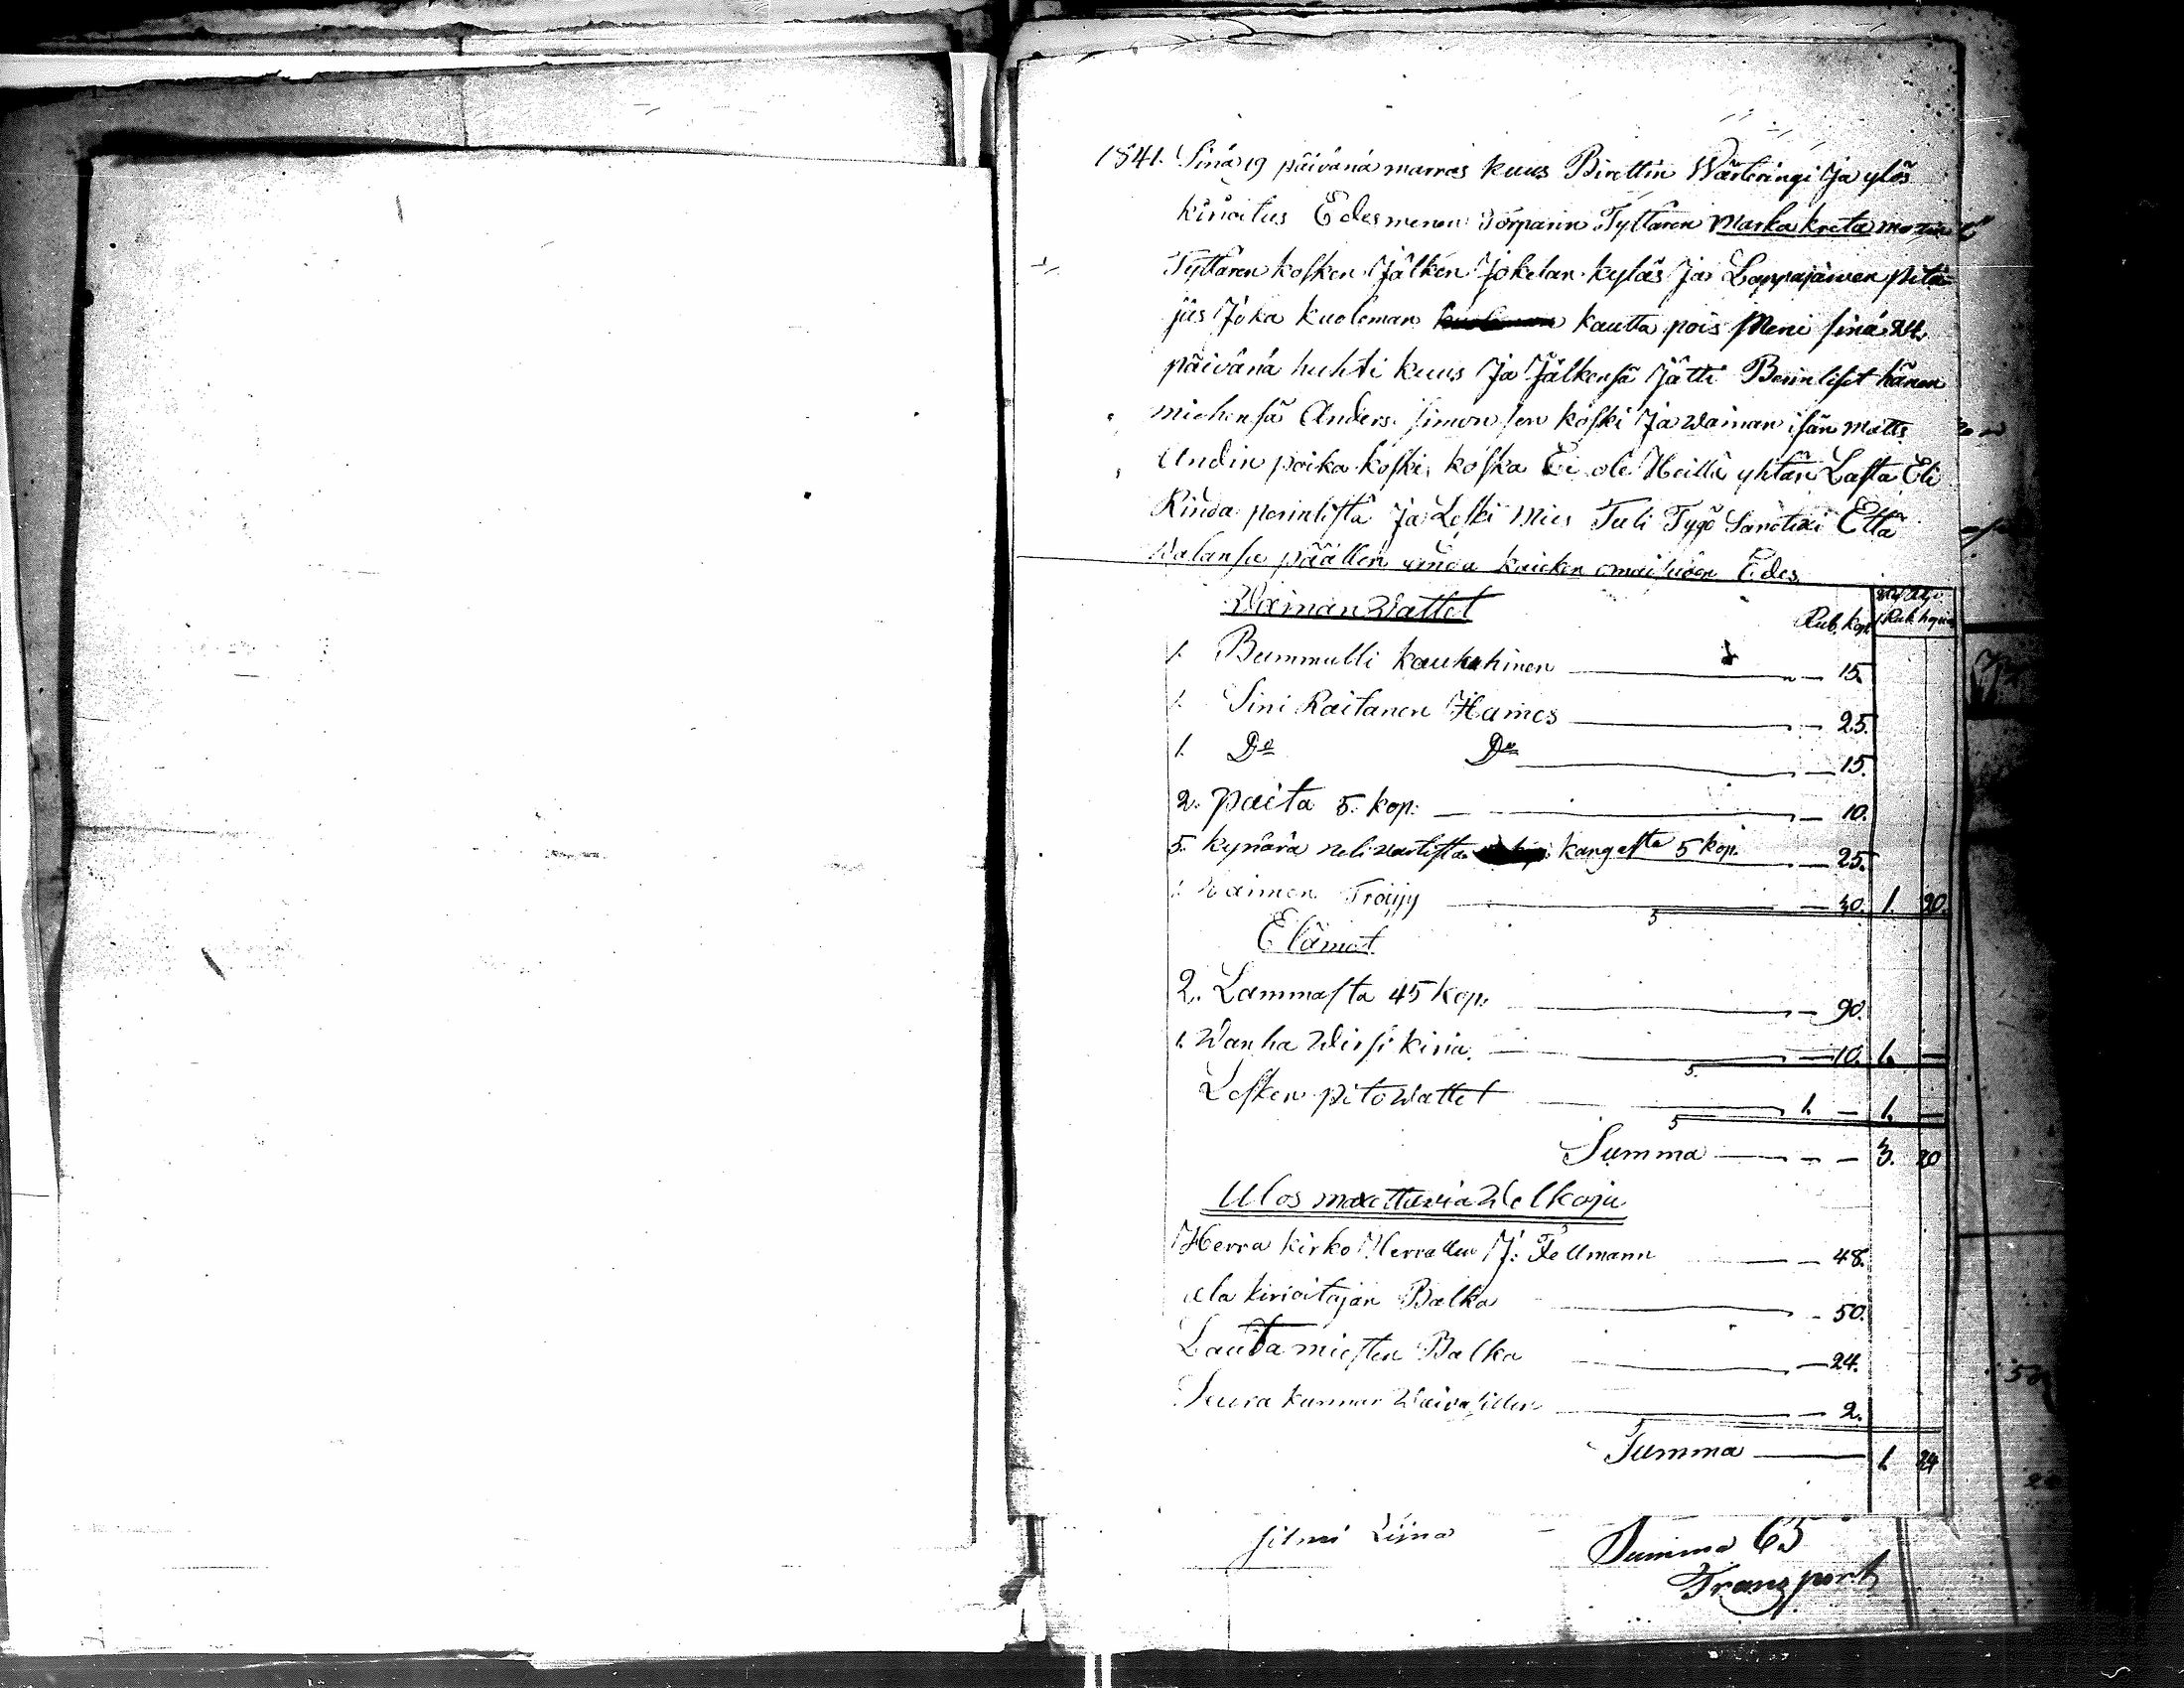 1841. Sinä 19 päivänä marras kuus Pirettin Wärteringi Ja ylös
kirioitus Edesmenen Torparin Tyttären Marka kreta
Tyttären kosken Jälken Jokelan kyläs Ja Lappajärven pitä
jäs Joka kuoleman kautta pois Meni sinä 24.
päivänä huhti kuus Ja Jälkensä Jätti Perinliset hänen
miehensä Anders simon sen koski Ja waiman isän matts
Andin poika koski, koska Ei ole Heillä yhtän Lasta Eli
Rinda perinlistä Ja Leski Mies Tuli Työ Että
Walansa päällen kaicken omaisuden Edes
Waiman Wattet
Rub. kop. Rub. kopia
1. Bummulli kaukahinen — 15.
1. Sini Raitanen Hames — 25.
1. Do Do — 15.
2. paita 5. kop: — 10.
5. kynärä neliwartista kangasta 5 kop. — 25.
1. Waimon Tröijy — 30. 1. 20.
Elämät
2. Lammasta 45 kop: — 90.
1. Wanha Wirsi kiria. — 10. 1. —
Lesken pito Wattet — 1. — 1. —
Summa — 3. 20
Ulos maxettawia Welkoja
Herra kirko Herrallen J: Fellmann — 48.
ala kirioitajan Palka — 50.
Lautamiesten Palka — 24.
Seura kunnan Waivasillen — 2.
Summa — 1. 24
silmi Liina
Summa 65
Transport